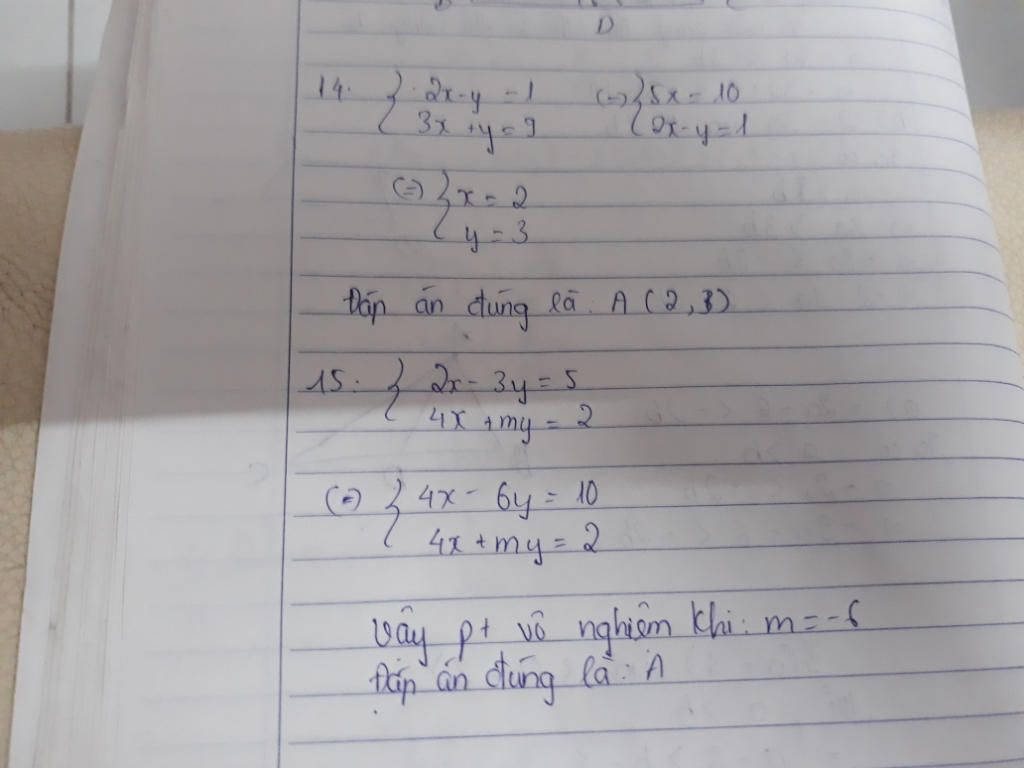 D
14. { 2x-y = 1 (=) { 5x = 10
3x + y = 9 2x-y = 1
(=) { x = 2
y = 3
Đáp án đúng là: A (2, 3)
15. { 2x - 3y = 5
4x + my = 2
(=) { 4x - 6y = 10
4x + my = 2
Vậy pt vô nghiệm khi: m = -6
Đáp án đúng là: A